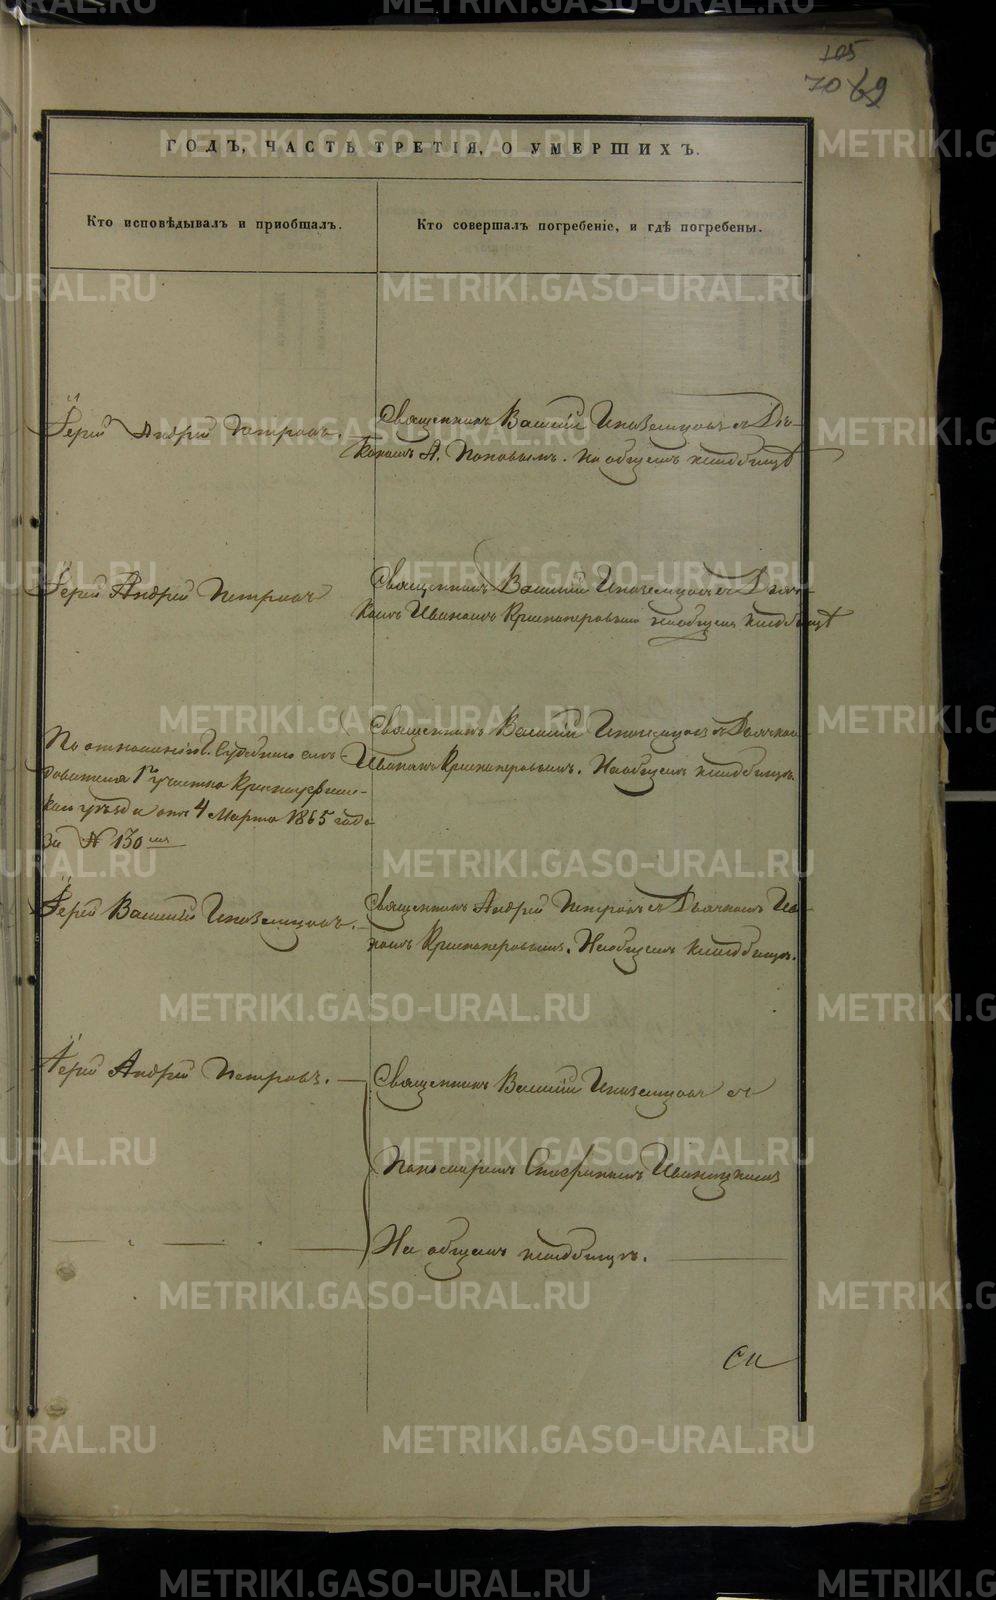 105
70 69
ГОДЪ, ЧАСТЬ ТРЕТІЯ, О УМЕРШИХЪ.
Кто исповѣдывалъ и приобщалъ.
Кто совершалъ погребеніе, и гдѣ погребены.
Іерей Андрей Петровъ.
Священникъ Василій Иноземцовъ съ Дья-
кономъ А. Поповымъ. На общемъ кладбищѣ
Іерей Андрей Петровъ
Священникъ Василій Иноземцовъ съ Дьяч-
комъ Иваномъ Крисоперовымъ на общемъ кладбищѣ
По отношенію Г. Судебнаго слѣ-
дователя 1го участка Красноуфим-
скаго уѣзда отъ 4 Марта 1865 года
за № 130
Священникъ Василій Иноземцовъ съ Дьячкомъ
Иваномъ Крисоперовымъ. На общемъ кладбищѣ.
Іерей Василій Иноземцовъ.
Священникъ Андрей Петровъ съ Дьячкомъ Ива-
номъ Крисоперовымъ. На общемъ кладбищѣ.
Іерей Андрей Петровъ.
Священникъ Василій Иноземцовъ съ
Пономаремъ Иваницкимъ
На общемъ кладбищѣ.
METRIKI.GASO-URAL.RU